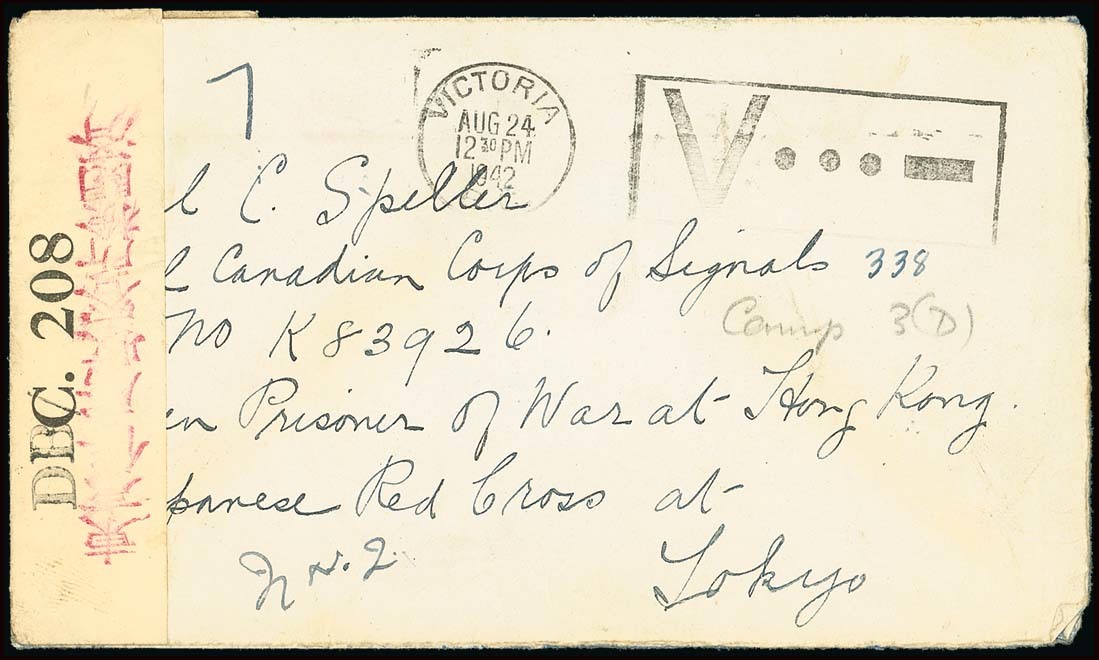 DBC. 208
7
VICTORIA
AUG 24
12 30 PM
1942
V
l C. Speller
l Canadian Corps of Signals 338
No K 83926.
Camp 3(D)
en Prisoner of War at Hong Kong.
panese Red Cross at
Tokyo